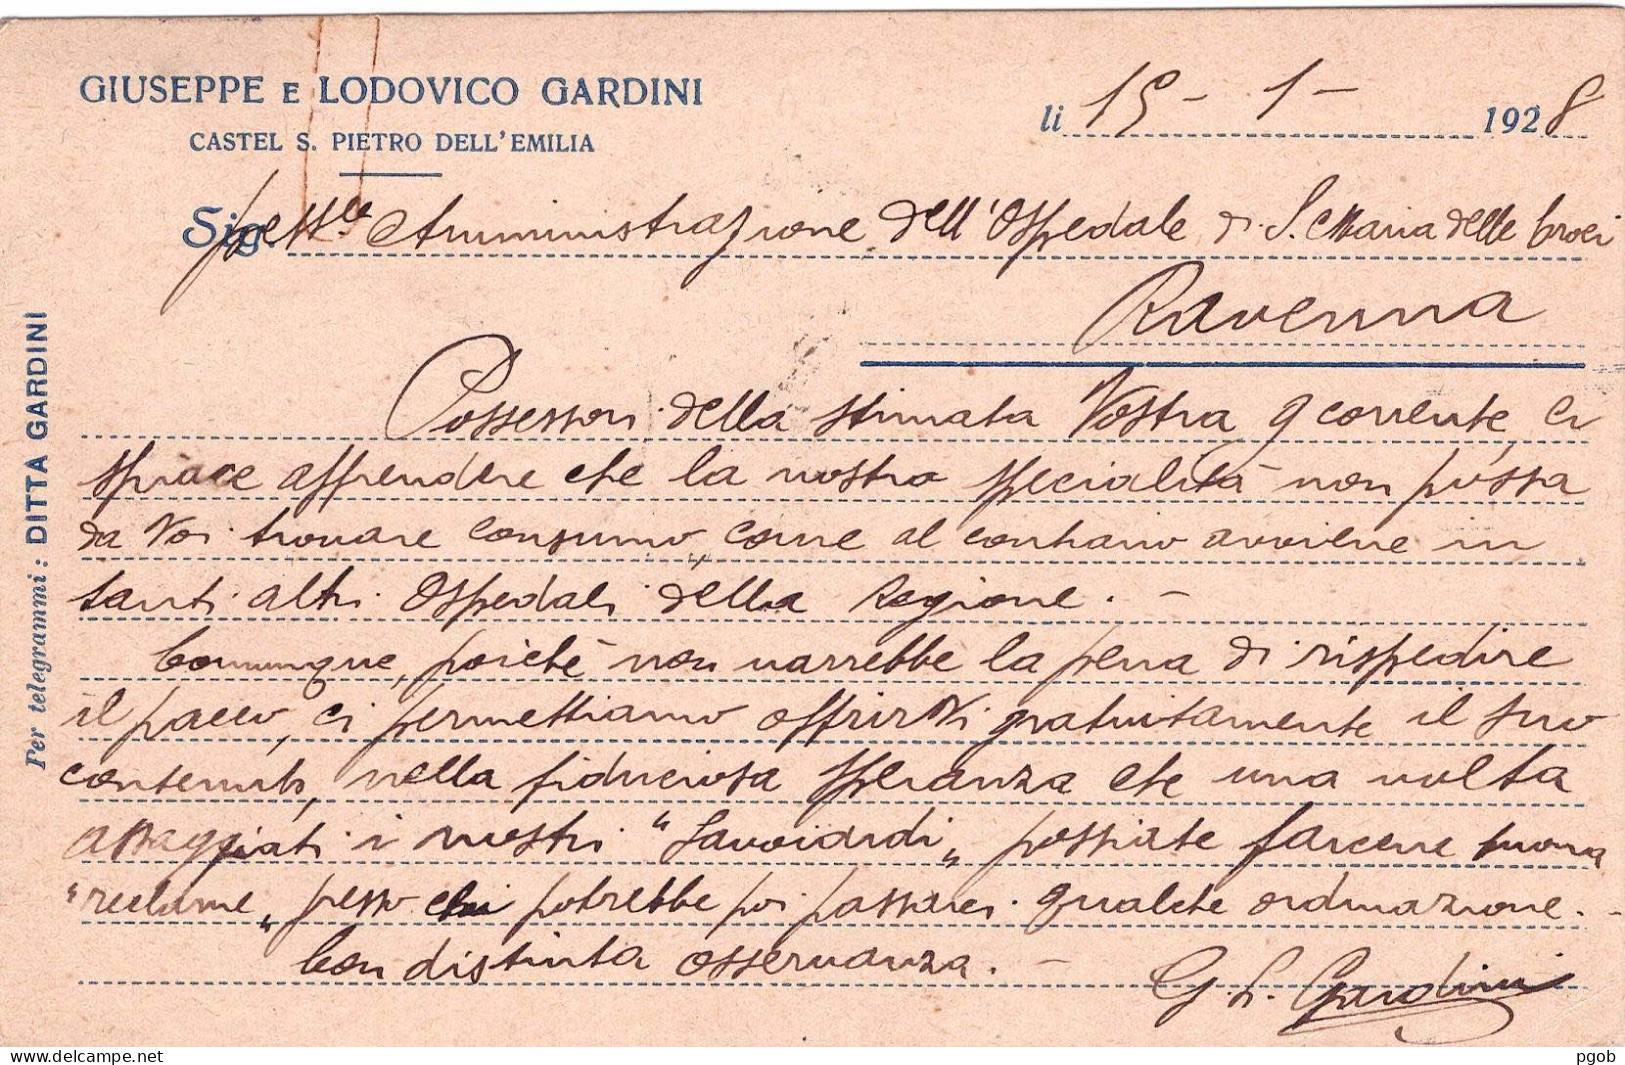 GIUSEPPE E LODOVICO GARDINI
CASTEL S. PIETRO DELL'EMILIA
li 15 - 1 - 1928
Sig
Amministrazione dell'Ospedale di S. Maria delle Croci
Ravenna
Per telegrammi: DITTA GARDINI
Possessori della stimata Vostra 9 corrente, ci
spiace apprendere che la nostra specialità non possa
da Voi trovare consumo, come al contrario avviene in
tanti altri Ospedali della Regione. -
Comunque, poichè non varrebbe la pena di rispedire
il pacco, ci permettiamo offrirVi gratuitamente il suo
contenuto, nella fiduciosa speranza che una volta
assaggiati i nostri "Savoiardi" possiate farcene buona
"reclame" presso chi potrebbe poi passarci qualche ordinazione. -
Con distinta osservanza. -
G. L. Gardini
delcampe.net
pgob